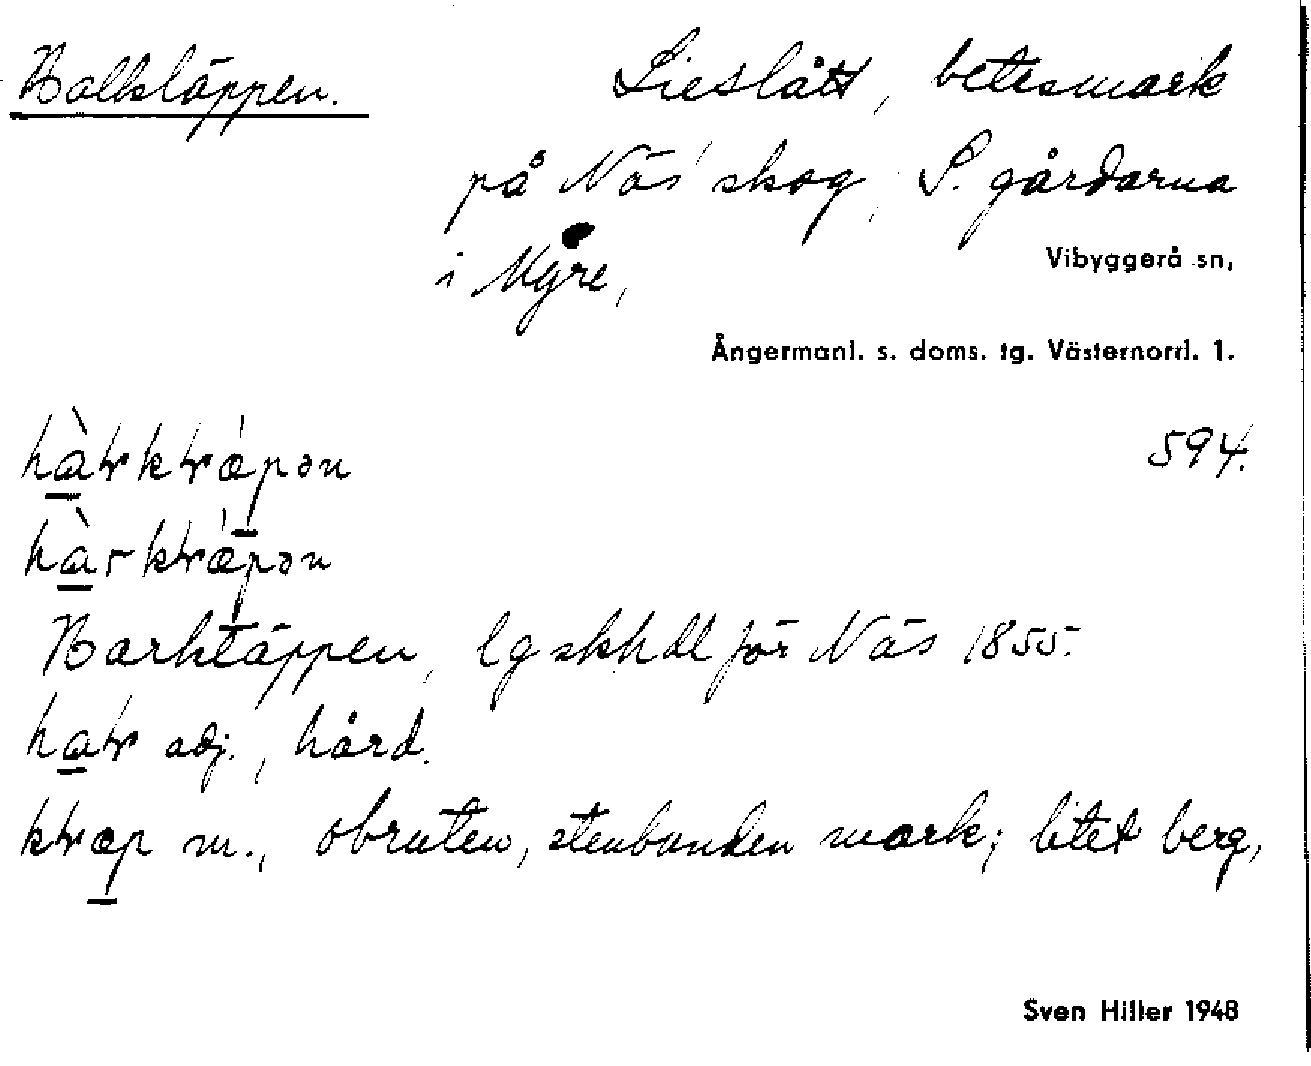 Halkläppen.
Lieslått, betesmark
på Näs' skog, S. gårdarna
i Myre,
Vibyggerå sn,
Ångermanl. s. doms. tg. Västernorrl. l.
594.
Harktäppen, lgskhdl för Näs 1855.
adj., hård.
m., obruten, stenbunden mark; litet berg,
Sven Hiller 1948